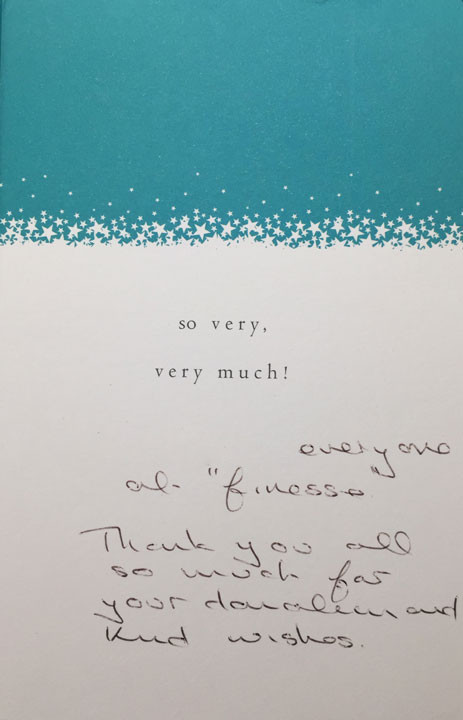 so very,
very much!
everyone
at "finesse"
Thank you all
so much for
your donation and
kind wishes.